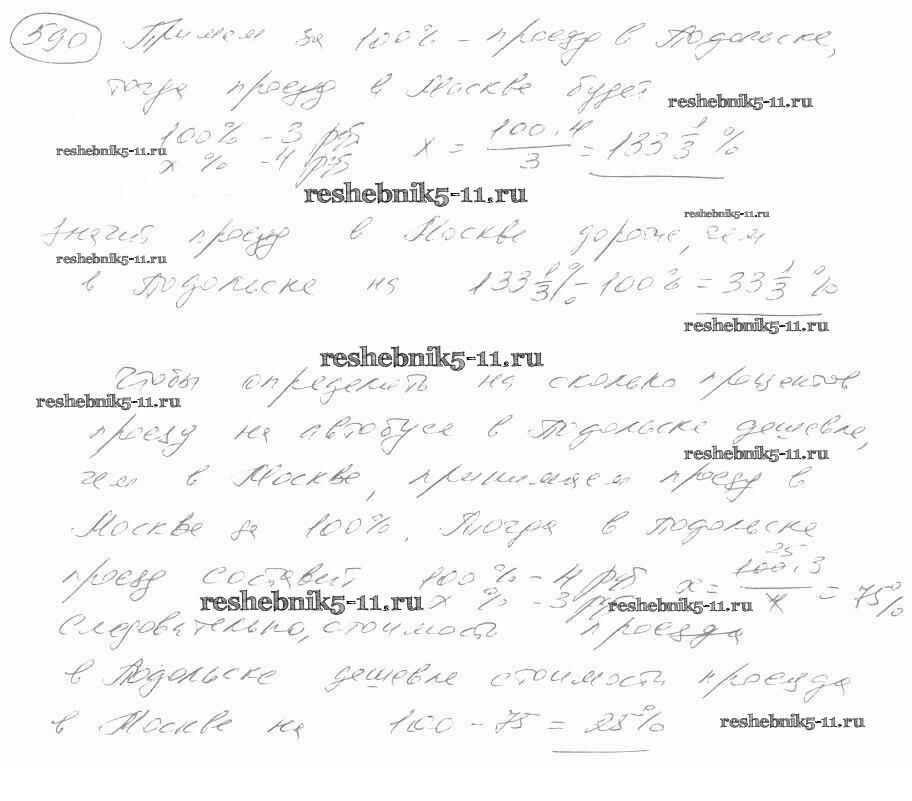 590 Примем за 100% – проезд в Подольске,
тогда проезд в Москве будет
reshebnik5-11.ru
100% – 3 руб x = 100·4/3 = 133 1/3 %
reshebnik5-11.ru
x % – 4 руб
reshebnik5-11.ru
reshebnik5-11.ru
значит проезд в Москве дороже, чем
reshebnik5-11.ru
в Подольске на 133 1/3 % – 100% = 33 1/3 %
reshebnik5-11.ru
reshebnik5-11.ru
Чтобы определить на сколько процентов
reshebnik5-11.ru
проезд на автобусе в Подольске дешевле,
reshebnik5-11.ru
чем в Москве, принимаем проезд в
Москве за 100%. Тогда в Подольске
проезд составит 100% – 4 руб x = 100·3/4 = 75%
25
reshebnik5-11.ru x % – 3 руб reshebnik5-11.ru
Следовательно, стоимость проезда
в Подольске дешевле стоимости проезда
в Москве на 100 – 75 = 25% reshebnik5-11.ru